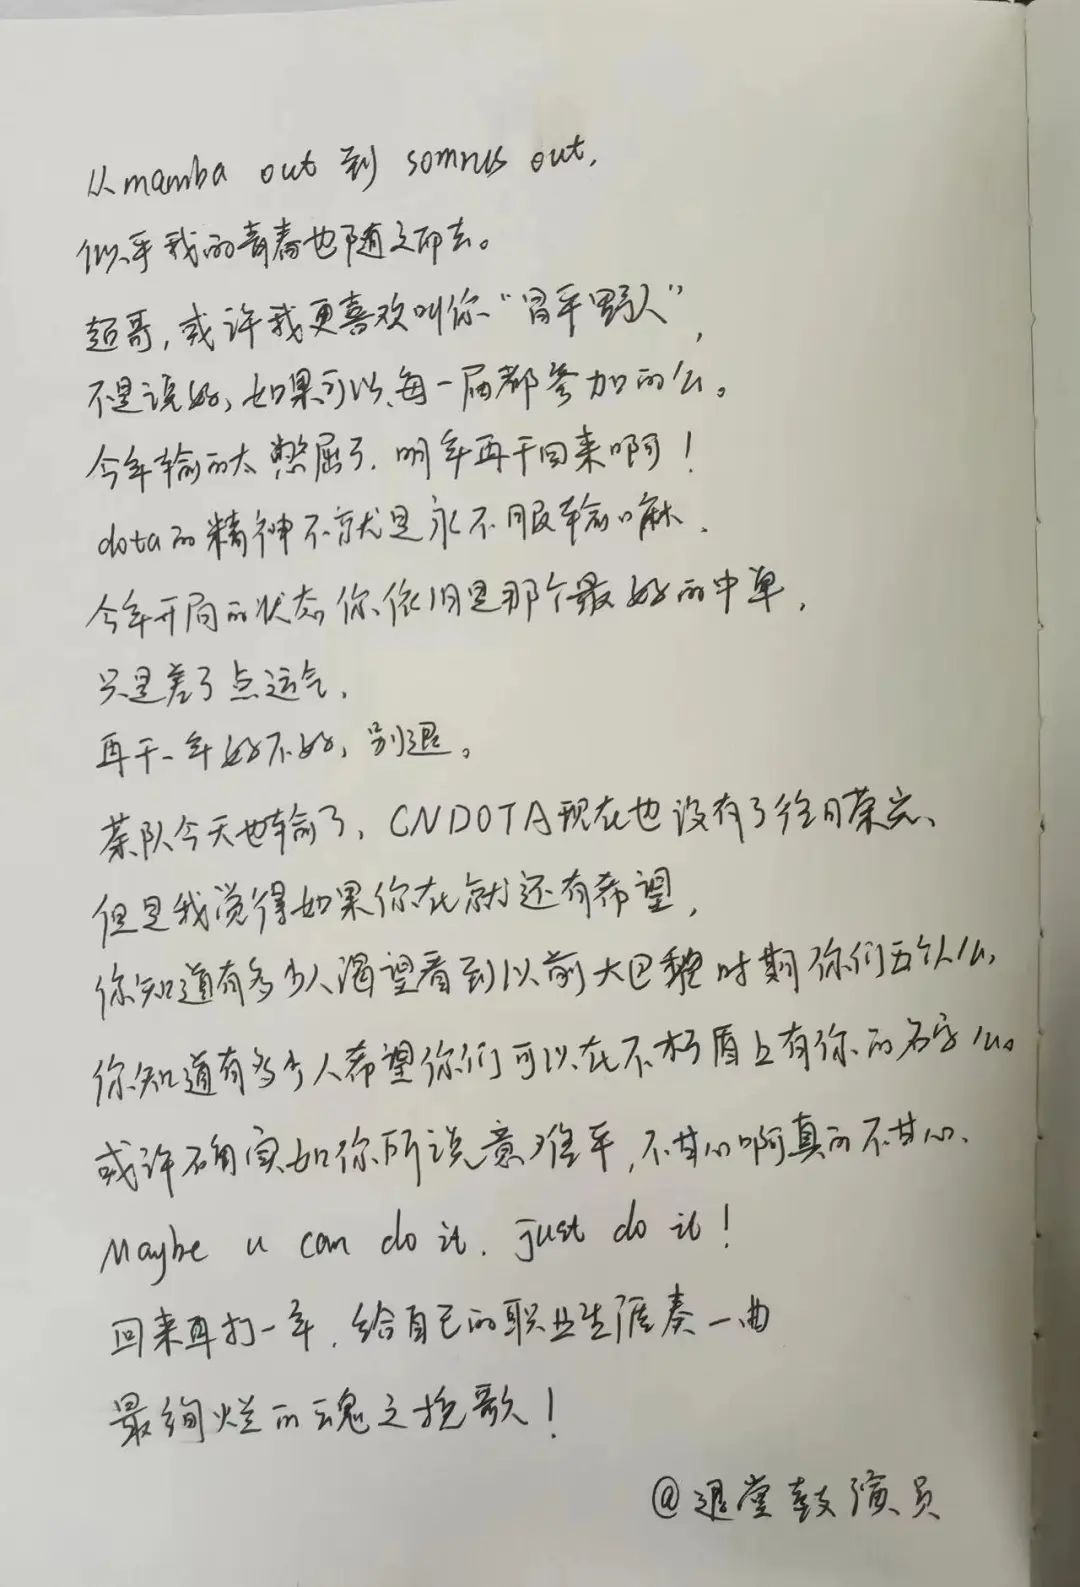 从mamba out 到 somnus out,
似乎我的青春也随之而去。
超哥,或许我更喜欢叫你“昌平野人”,
不是说好,如果可以,每一届都参加的么。
今年输的太憋屈了,明年再干回来啊!
dota的精神不就是永不服输嘛,
今年开局的状态你依旧是那个最好的中单,
只是差了点运气,
再干一年好不好,别退。
茶队今天也输了,CNDOTA现在也没有了往日荣光、
但是我觉得如果你在就还有希望,
你知道有多少人渴望看到以前大巴黎时期你们五个人么,
你知道有多少人希望你们可以在不朽盾上有你的名字么。
或许确实如你所说意难平,不甘心啊真的不甘心、
Maybe u can do it. just do it!
回来再打一年,给自己的职业生涯奏一曲
最绚烂的魂之挽歌!
@退堂鼓演员